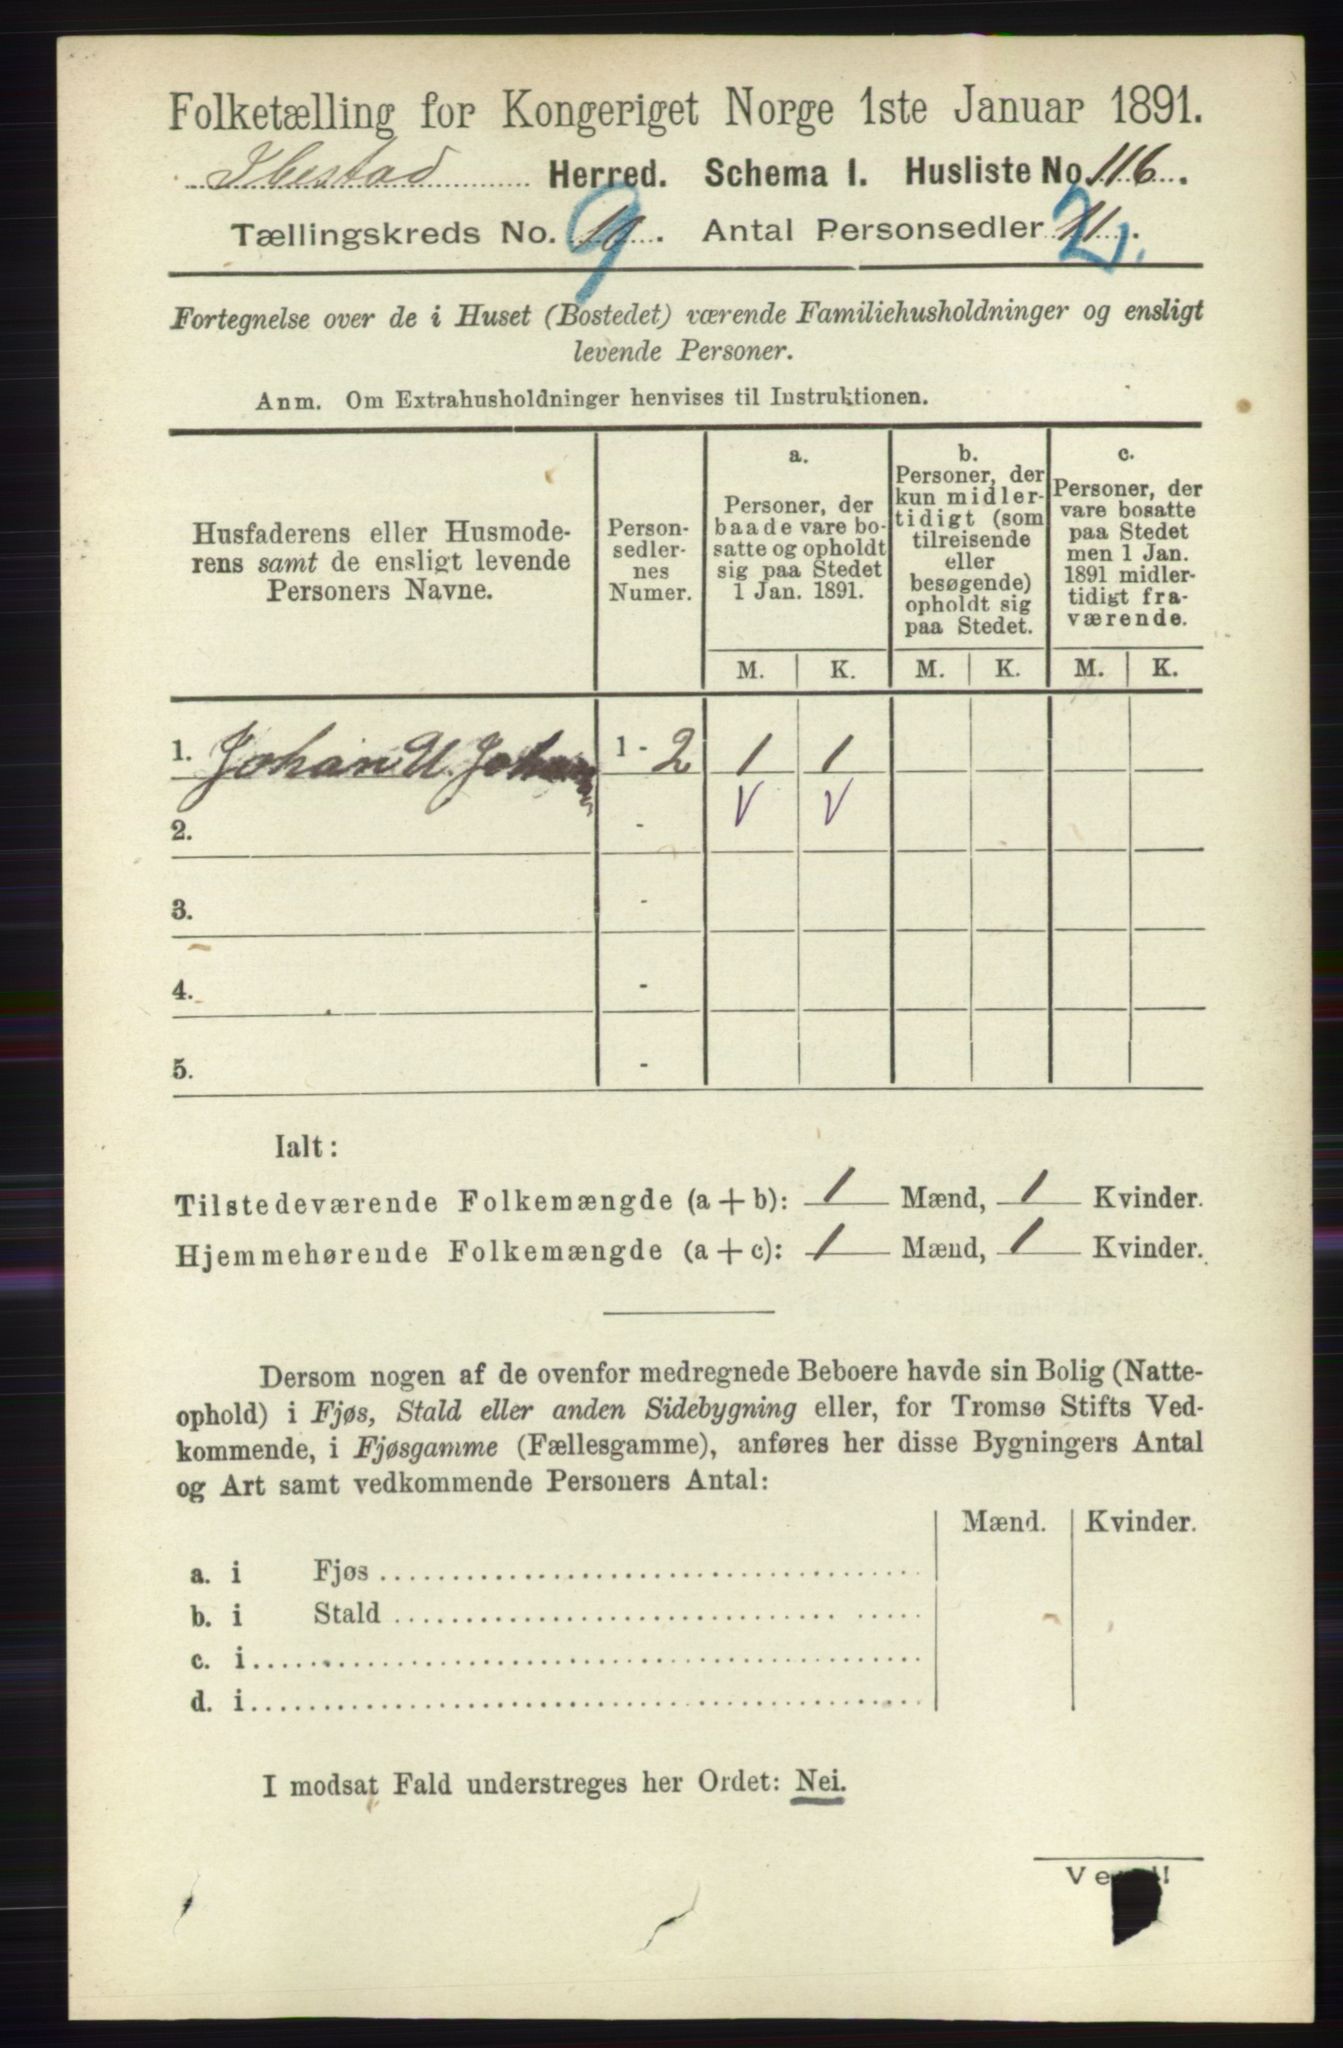 Folketælling for Kongeriget Norge 1ste Januar 1891.
Ibestad Herred. Schema I. Husliste No. 116.
Tællingskreds No. 9. Antal Personsedler 2.
Fortegnelse over de i Huset (Bostedet) værende Familiehusholdninger og ensligt
levende Personer.
Anm. Om Extrahusholdninger henvises til Instruktionen.
Husfaderens eller Husmode-
rens samt de ensligt levende
Personers Navne.
Person-
sedler-
nes
Numer.
a.
Personer, der
baade vare bo-
satte og opholdt
sig paa Stedet
1 Jan. 1891.
b.
Personer, der
kun midler-
tidigt (som
tilreisende
eller
besøgende)
opholdt sig
paa Stedet.
c.
Personer, der
vare bosatte
paa Stedet
men 1 Jan.
1891 midler-
tidigt fra-
værende.
M. K. M. K. M. K.
1. Johan U. 1 - 2 1 1
2. - V V
3. -
4. -
5. -
Ialt:
Tilstedeværende Folkemængde (a + b): 1 Mænd, 1 Kvinder.
Hjemmehørende Folkemængde (a + c): 1 Mænd, 1 Kvinder.
Dersom nogen af de ovenfor medregnede Beboere havde sin Bolig (Natte-
ophold) i Fjøs, Stald eller anden Sidebygning eller, for Tromsø Stifts Ved-
kommende, i Fjøsgamme (Fællesgamme), anføres her disse Bygningers Antal
og Art samt vedkommende Personers Antal:
Mænd. Kvinder.
a. i Fjøs
b. i Stald
c. i
d. i
I modsat Fald understreges her Ordet: Nei.